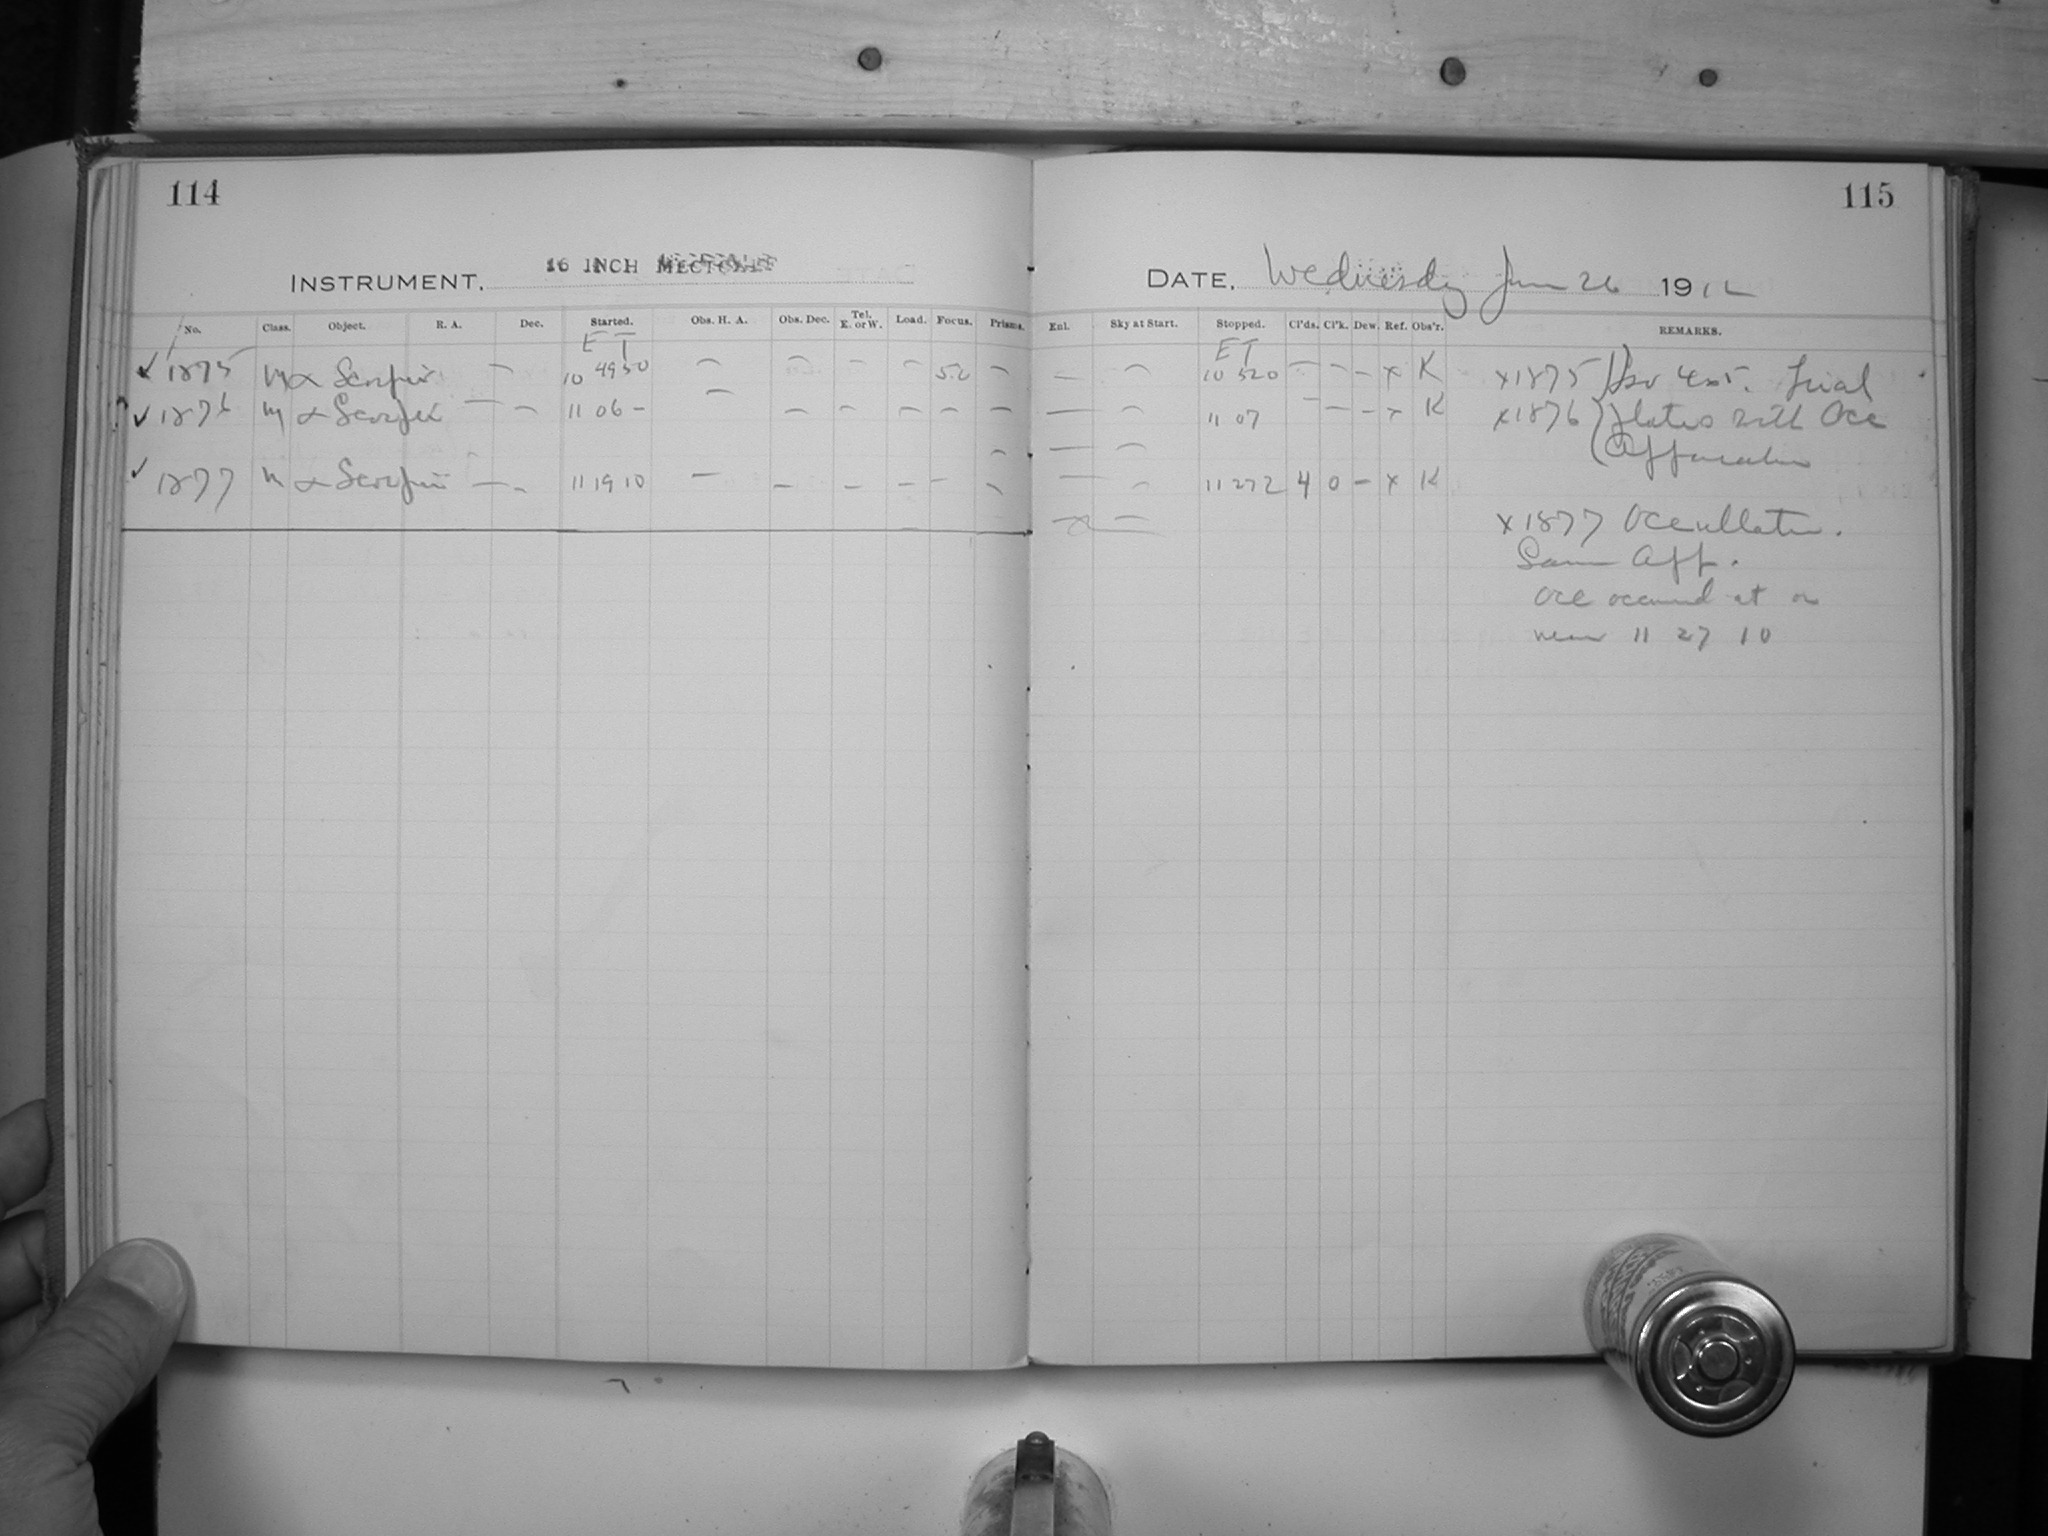 114
115
INSTRUMENT, 16 INCH METCALF
DATE, Wednesday June 26 1912
No. Class. Object. R. A. Dec. Started. Obs. H. A. Obs. Dec. Tel. E. or W. Load. Focus. Prisms.
Enl. Sky at Start. Stopped. Cl'ds. Cl'k. Dew. Ref. Obs'r. REMARKS.
E T
E T
✓ 1875 α Scorpii — 10 49 50 — — — — 5.2 —
— — 10 52 0 — — — x K x1875 Trial
✓ 1876 α Scorpii — — 11 06 — — — — — — —
— — 11 07 — — — x K x1876 } plates with Occ
Apparatus
✓ 1877 α Scorpii — — 11 19 10 — — — — — —
— — 11 27 2 4 0 — x K
x1877 Occultation.
Same App.
Occ occurred at or
near 11 27 10